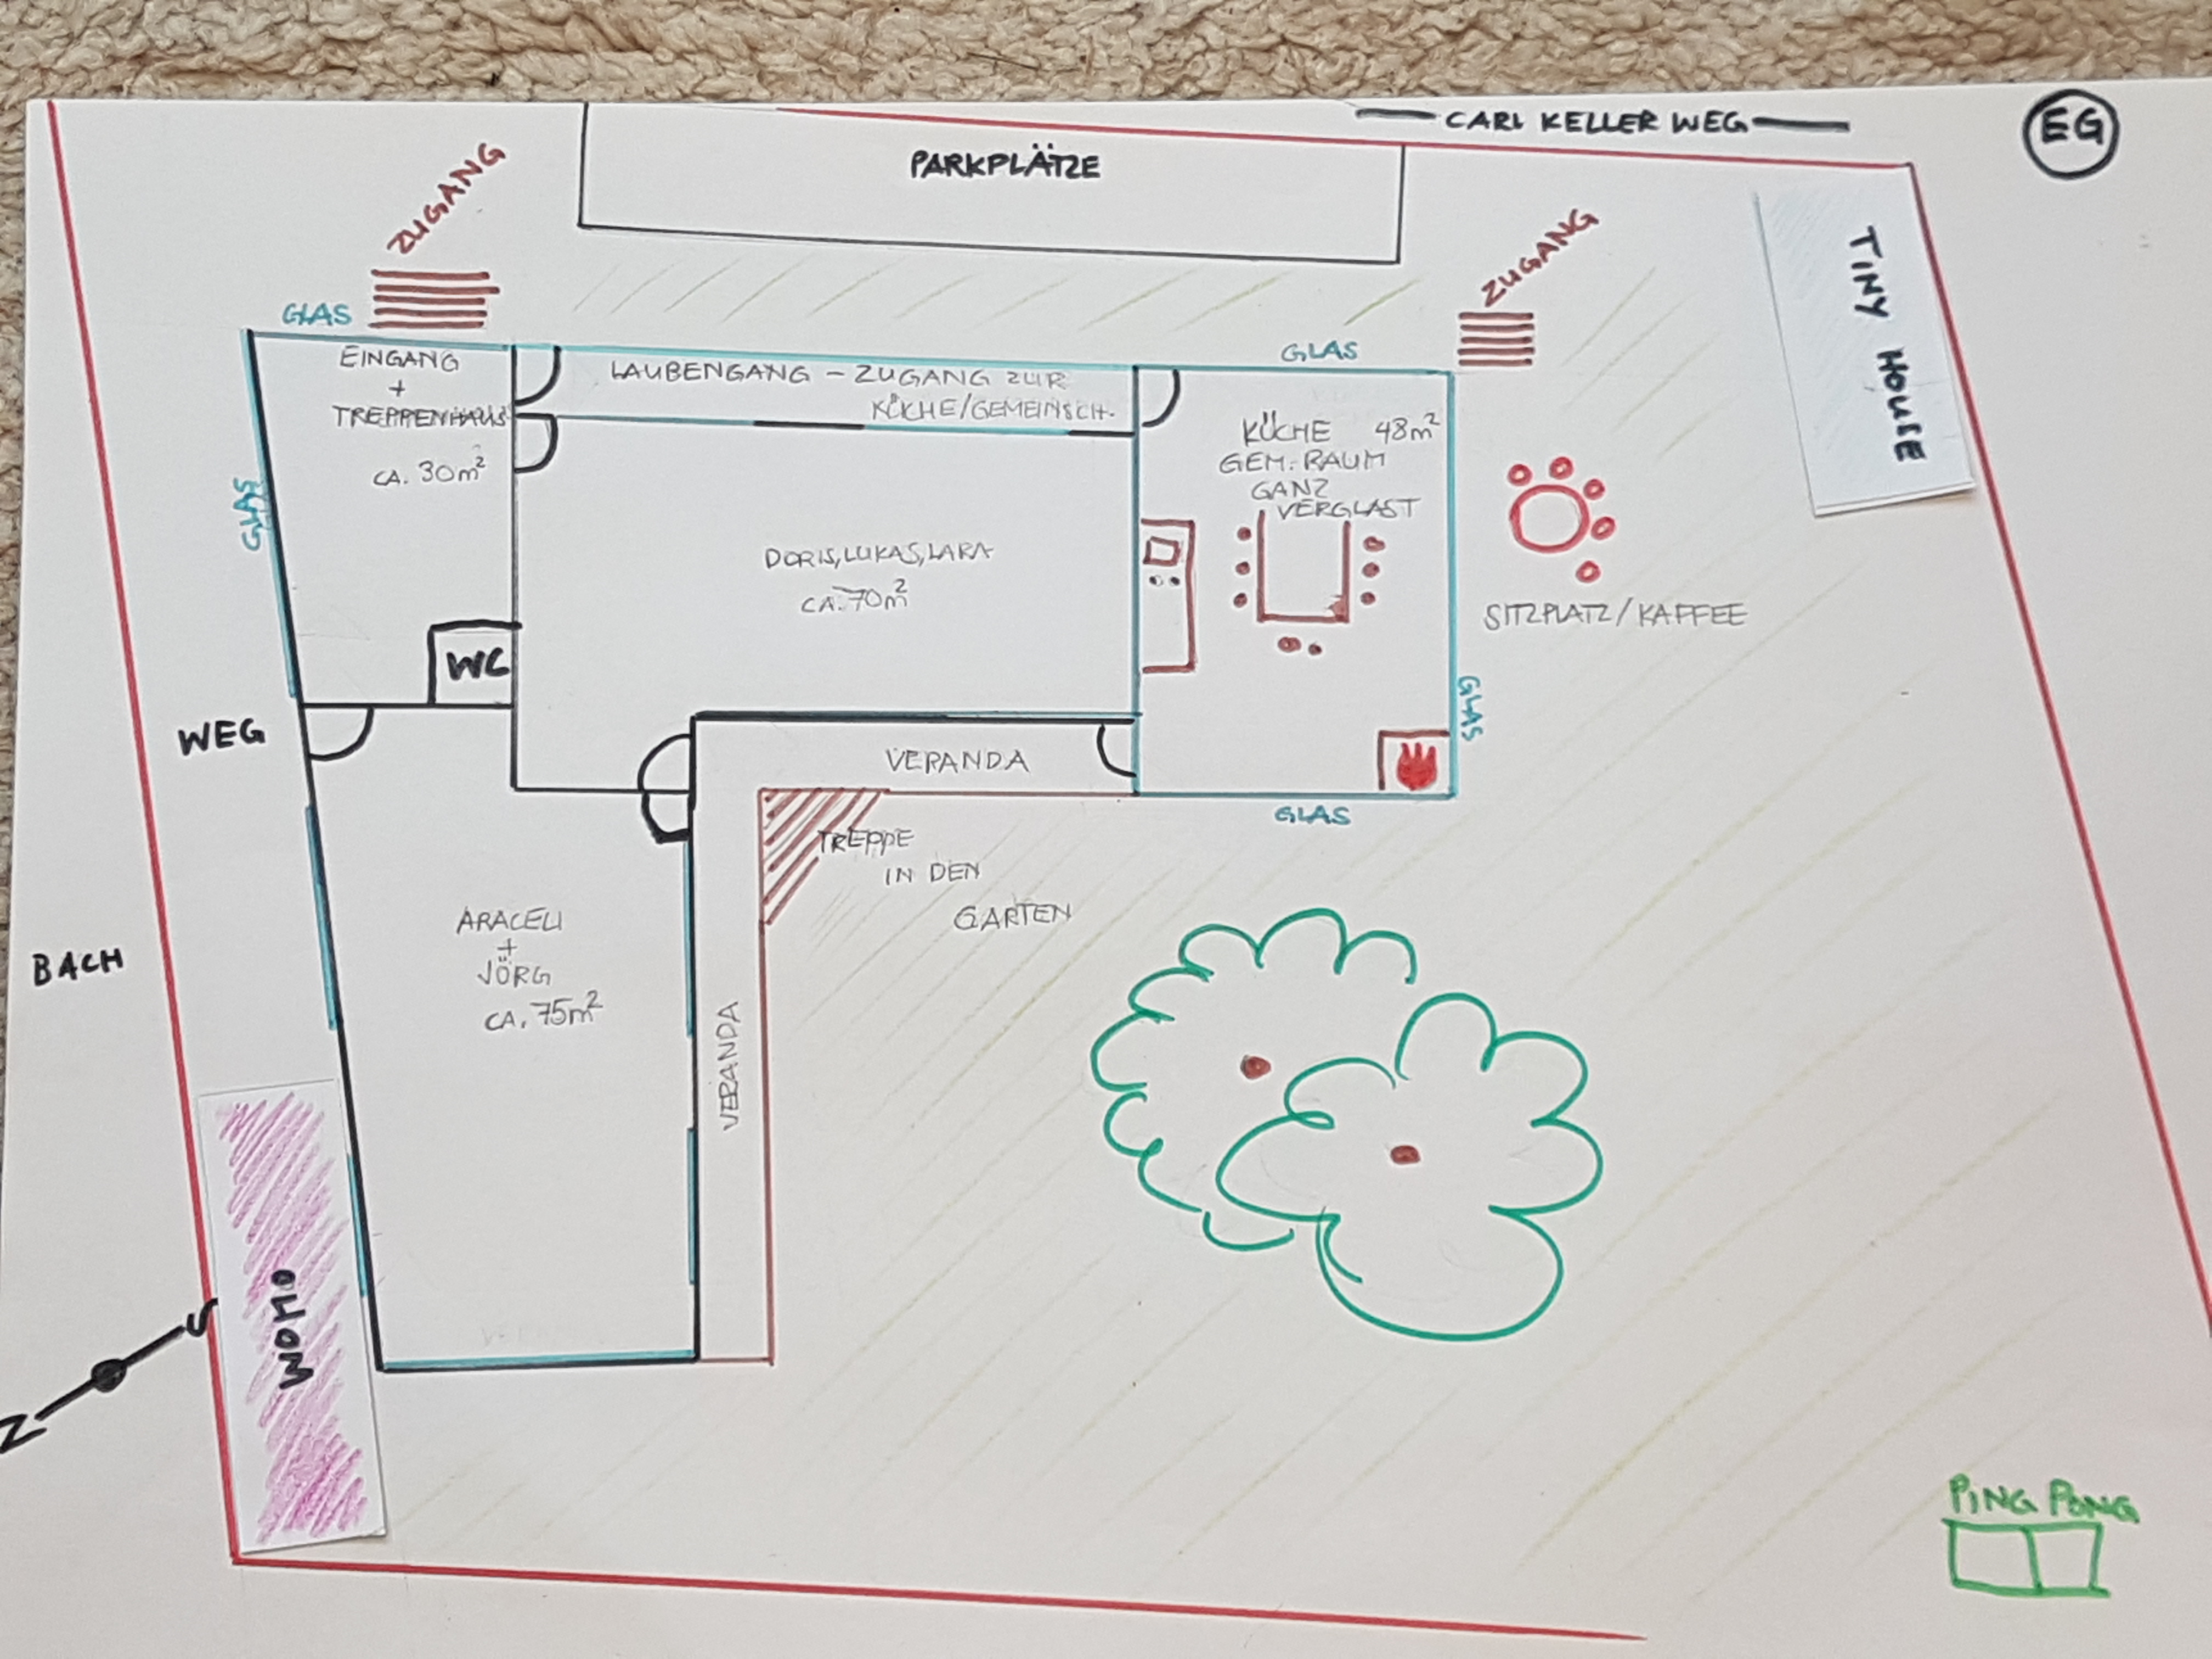 CARL KELLER WEG
EG
PARKPLÄTZE
ZUGANG
ZUGANG
TINY HOUSE
GLAS
GLAS
EINGANG
+
TREPPENHAUS
CA. 30m²
LAUBENGANG – ZUGANG ZUR
KÜCHE/GEMEINSCH.
KÜCHE 48m²
GEM. RAUM
GANZ
VERGLAST
GLAS
DORIS, LUKAS, LARA
CA. 70m²
SITZPLATZ/KAFFEE
WC
WEG
VERANDA
GLAS
GLAS
TREPPE
IN DEN
GARTEN
BACH
ARACELI
+
JÖRG
CA. 75m²
VERANDA
WOMO
S
N
PING PONG